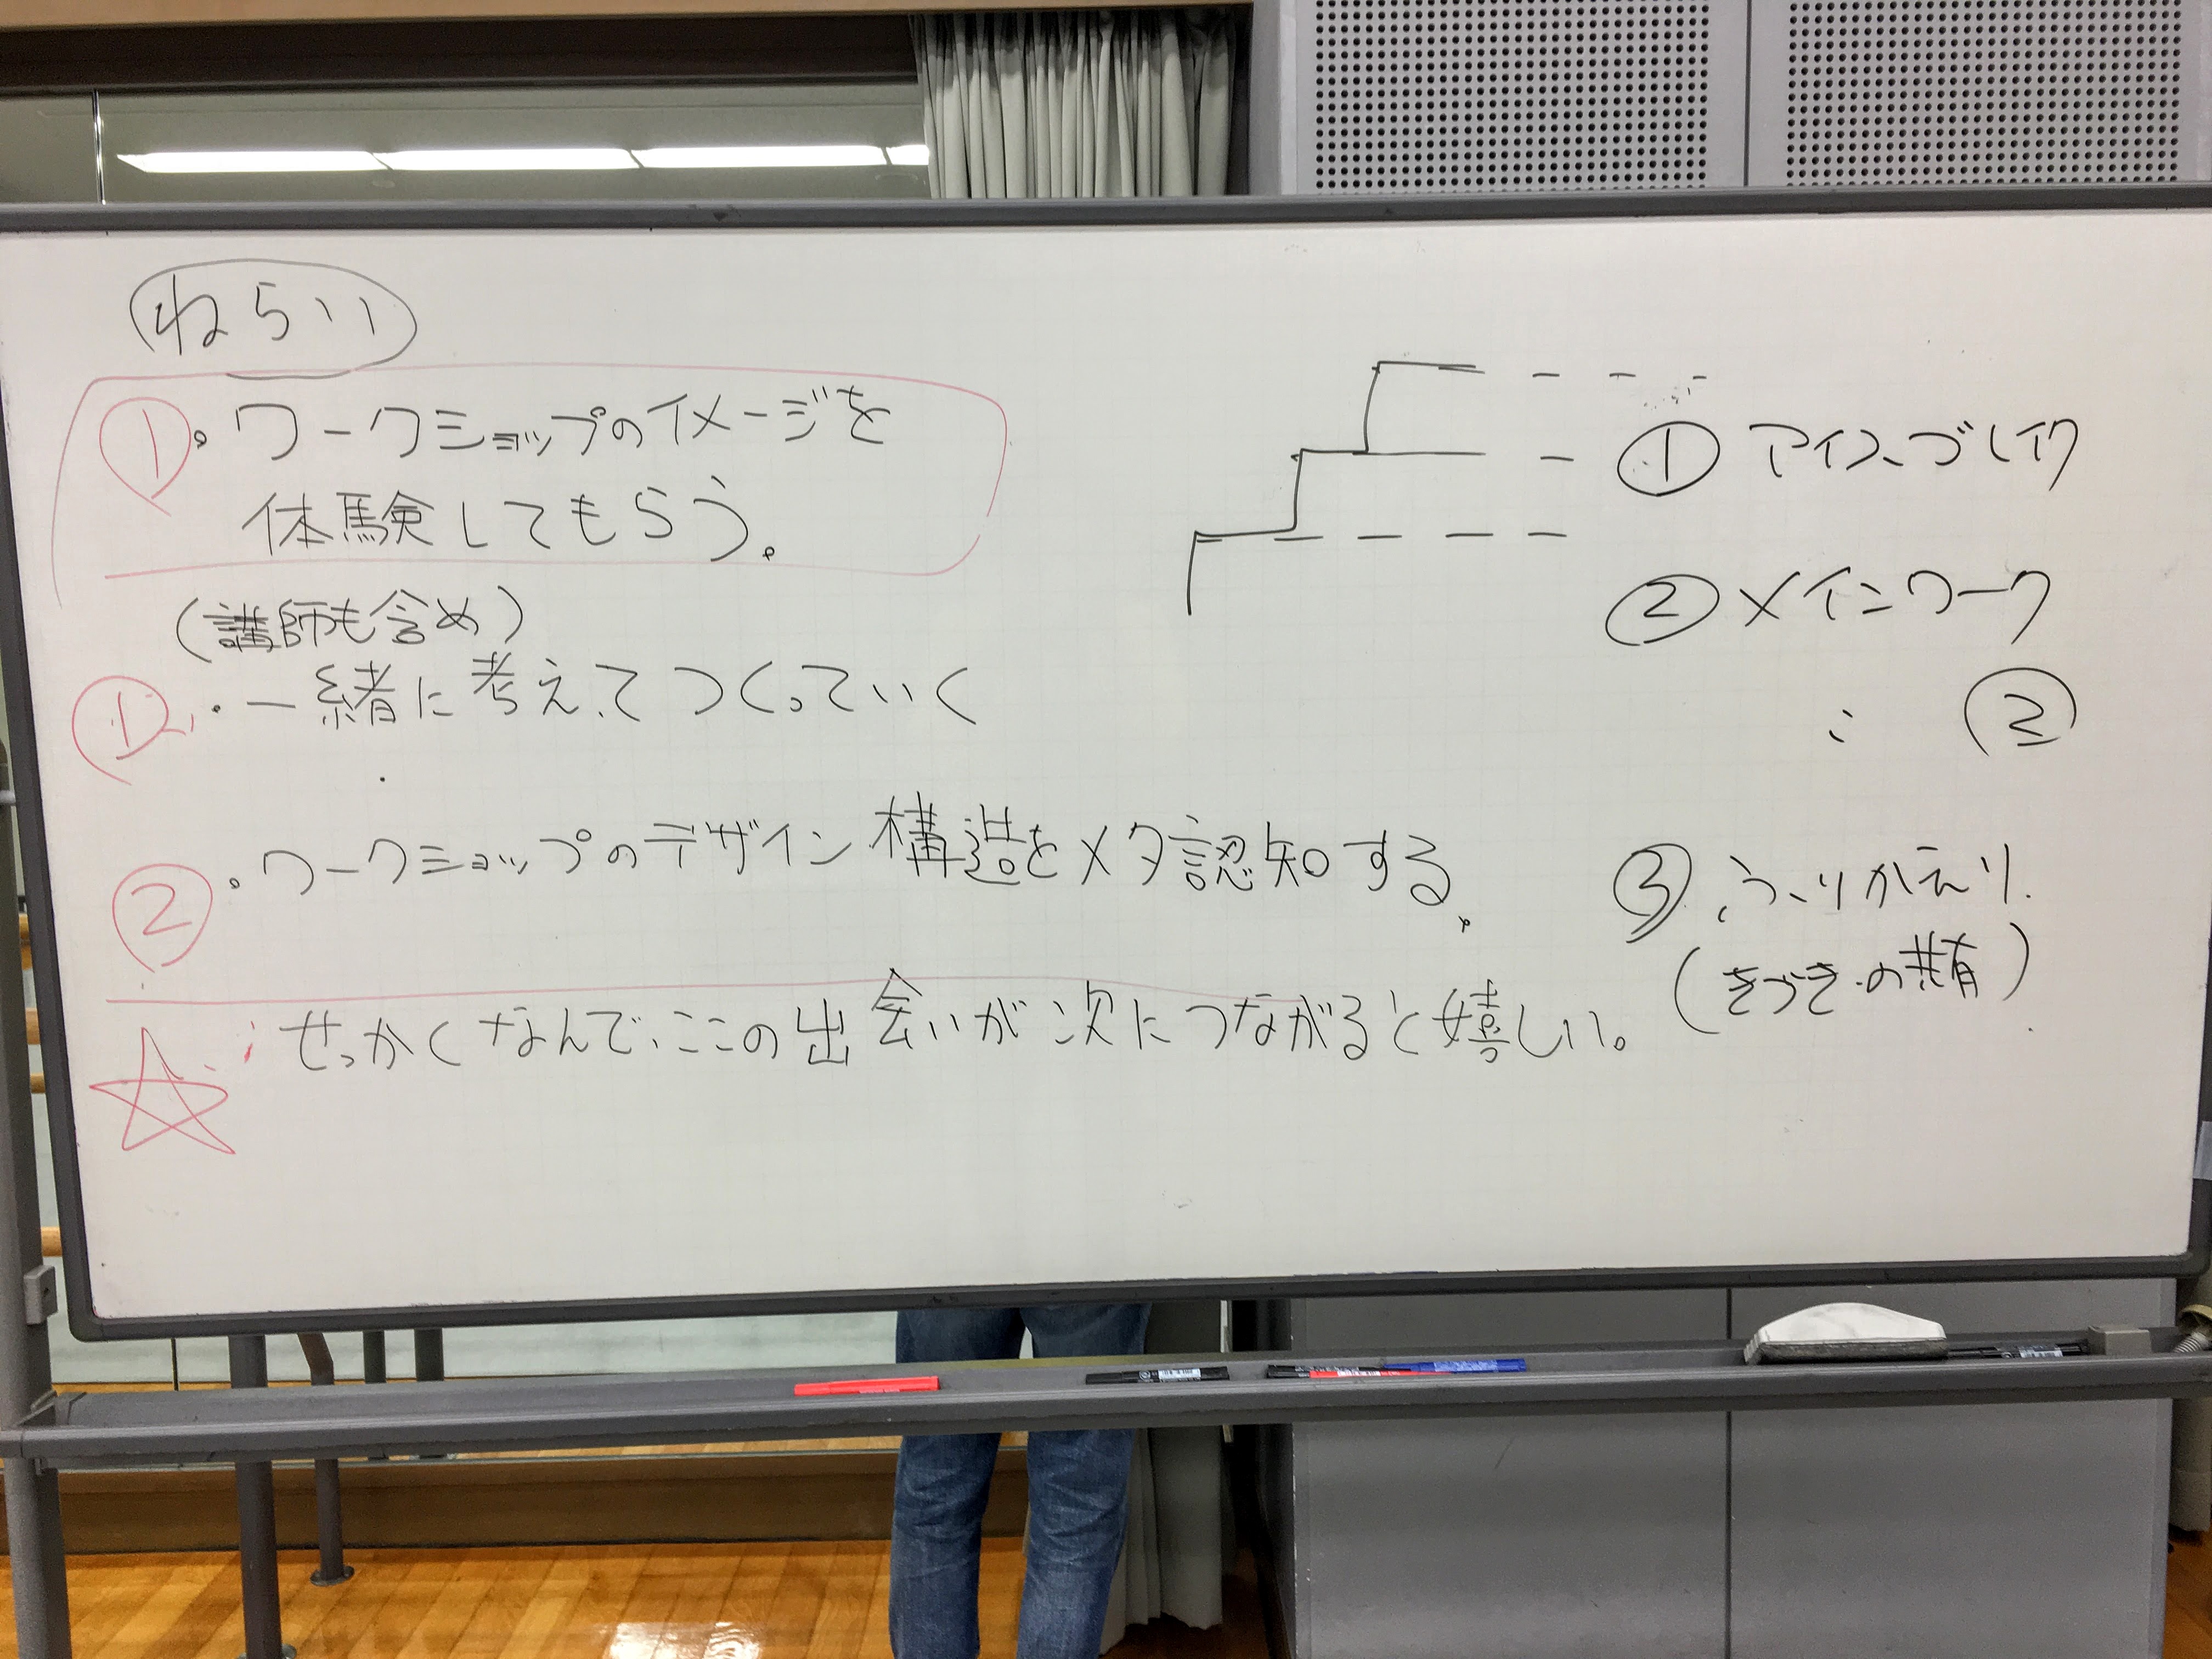 ねらい
①。ワークショップのイメージを
体験してもらう。
(講師も含め)
①'・一緒に考えてつくっていく
②。ワークショップのデザイン構造をメタ認知する。
☆ せっかくなんで、ここの出会いが次につながると嬉しい。
①アイスブレイク
②メインワーク
: ②
③ふりかえり.
(きづきの共有)